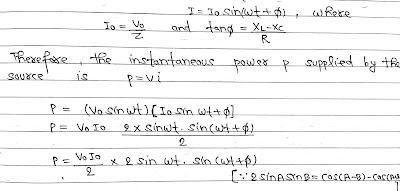 I = I₀ sin(ωt + ϕ) , where
I₀ = V₀/Z and tanϕ = X_L - X_C / R
Therefore, the instantaneous power p supplied by the
source is p = v i
P = (V₀ sin ωt) [I₀ sin ωt + ϕ]
P = V₀ I₀ 2 x sin ωt. sin (ωt + ϕ) / 2
P = V₀I₀/2 x 2 sin ωt. sin (ωt + ϕ)
[∵ 2 sin A sin B = cos(A-B) - cos(A+B